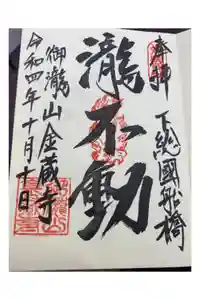 奉拝 下総國船橋
瀧不動
御瀧山金蔵寺
令和四年十月十日